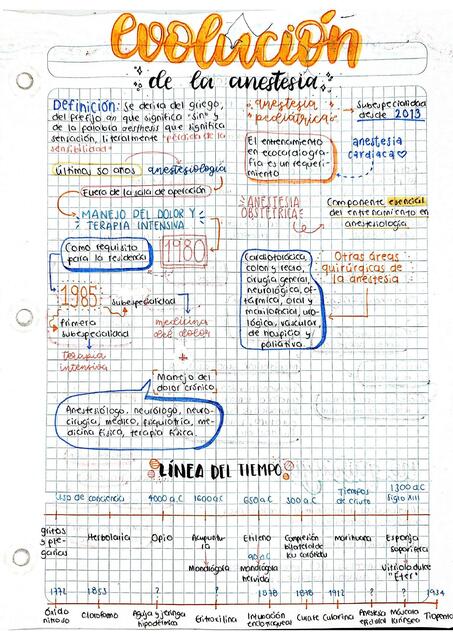 evolución
de la anestesia
Definición: Se deriva del griego,
del prefijo an que significa "sin" y
de la palabra aesthesis que significa
sensación, literalmente "pérdida de la
sensibilidad"
Últimos 50 años
anestesiología
Fuera de la sala de operación
MANEJO DEL DOLOR Y
TERAPIA INTENSIVA
Como requisito
para la residencia
1980
1985
Subespecialidad
primera
subespecialidad
terapia
intensiva
medicina
del dolor
+
Manejo del
dolor crónico
Anestesiólogo, neurólogo, neuro-
cirugía, médico, psiquiatría, me-
dicina física, terapia física.
anestesia
pediátrica
Subespecialidad
desde 2013
El entrenamiento
en ecocardiogra
fía es un requeri-
miento
anestesia
cardiaca
ANESTESIA
OBSTÉTRICA
Componente esencial
del entrenamiento en
anestesiología
Cardiotorácica,
colon y recto,
cirugía general,
neurológica, of-
tálmica, oral y
maxilofacial, uro-
lógica, vascular,
de hospicio y
paliativa.
Otras áreas
quirúrgicas de
la anestesia
LÍNEA DEL TIEMPO
4000 a.C 1600 a.C 650 a.C 300 a.C Tiempos de cristo 1300 a.C Siglo XIII
gritos y ple-
garias
Herbolaria
Opio
Acupuntu
ra
Mandrágora
Etileno
90 a.C
Mandrágora
hervida
Compresión
bilateral de
las carótidas
Marihuana
Esponja
soporífera
Vitriolo dulce
"Éter"
1772 1853 ? ? 1878 1878 1912 ? ? 1934
Óxido
nitroso
Cloroformo
Aguja y jeringa
hipodérmica
Intubación
endotraqueal
Curare
Anestesia
epidural
Máscara
Tiopental